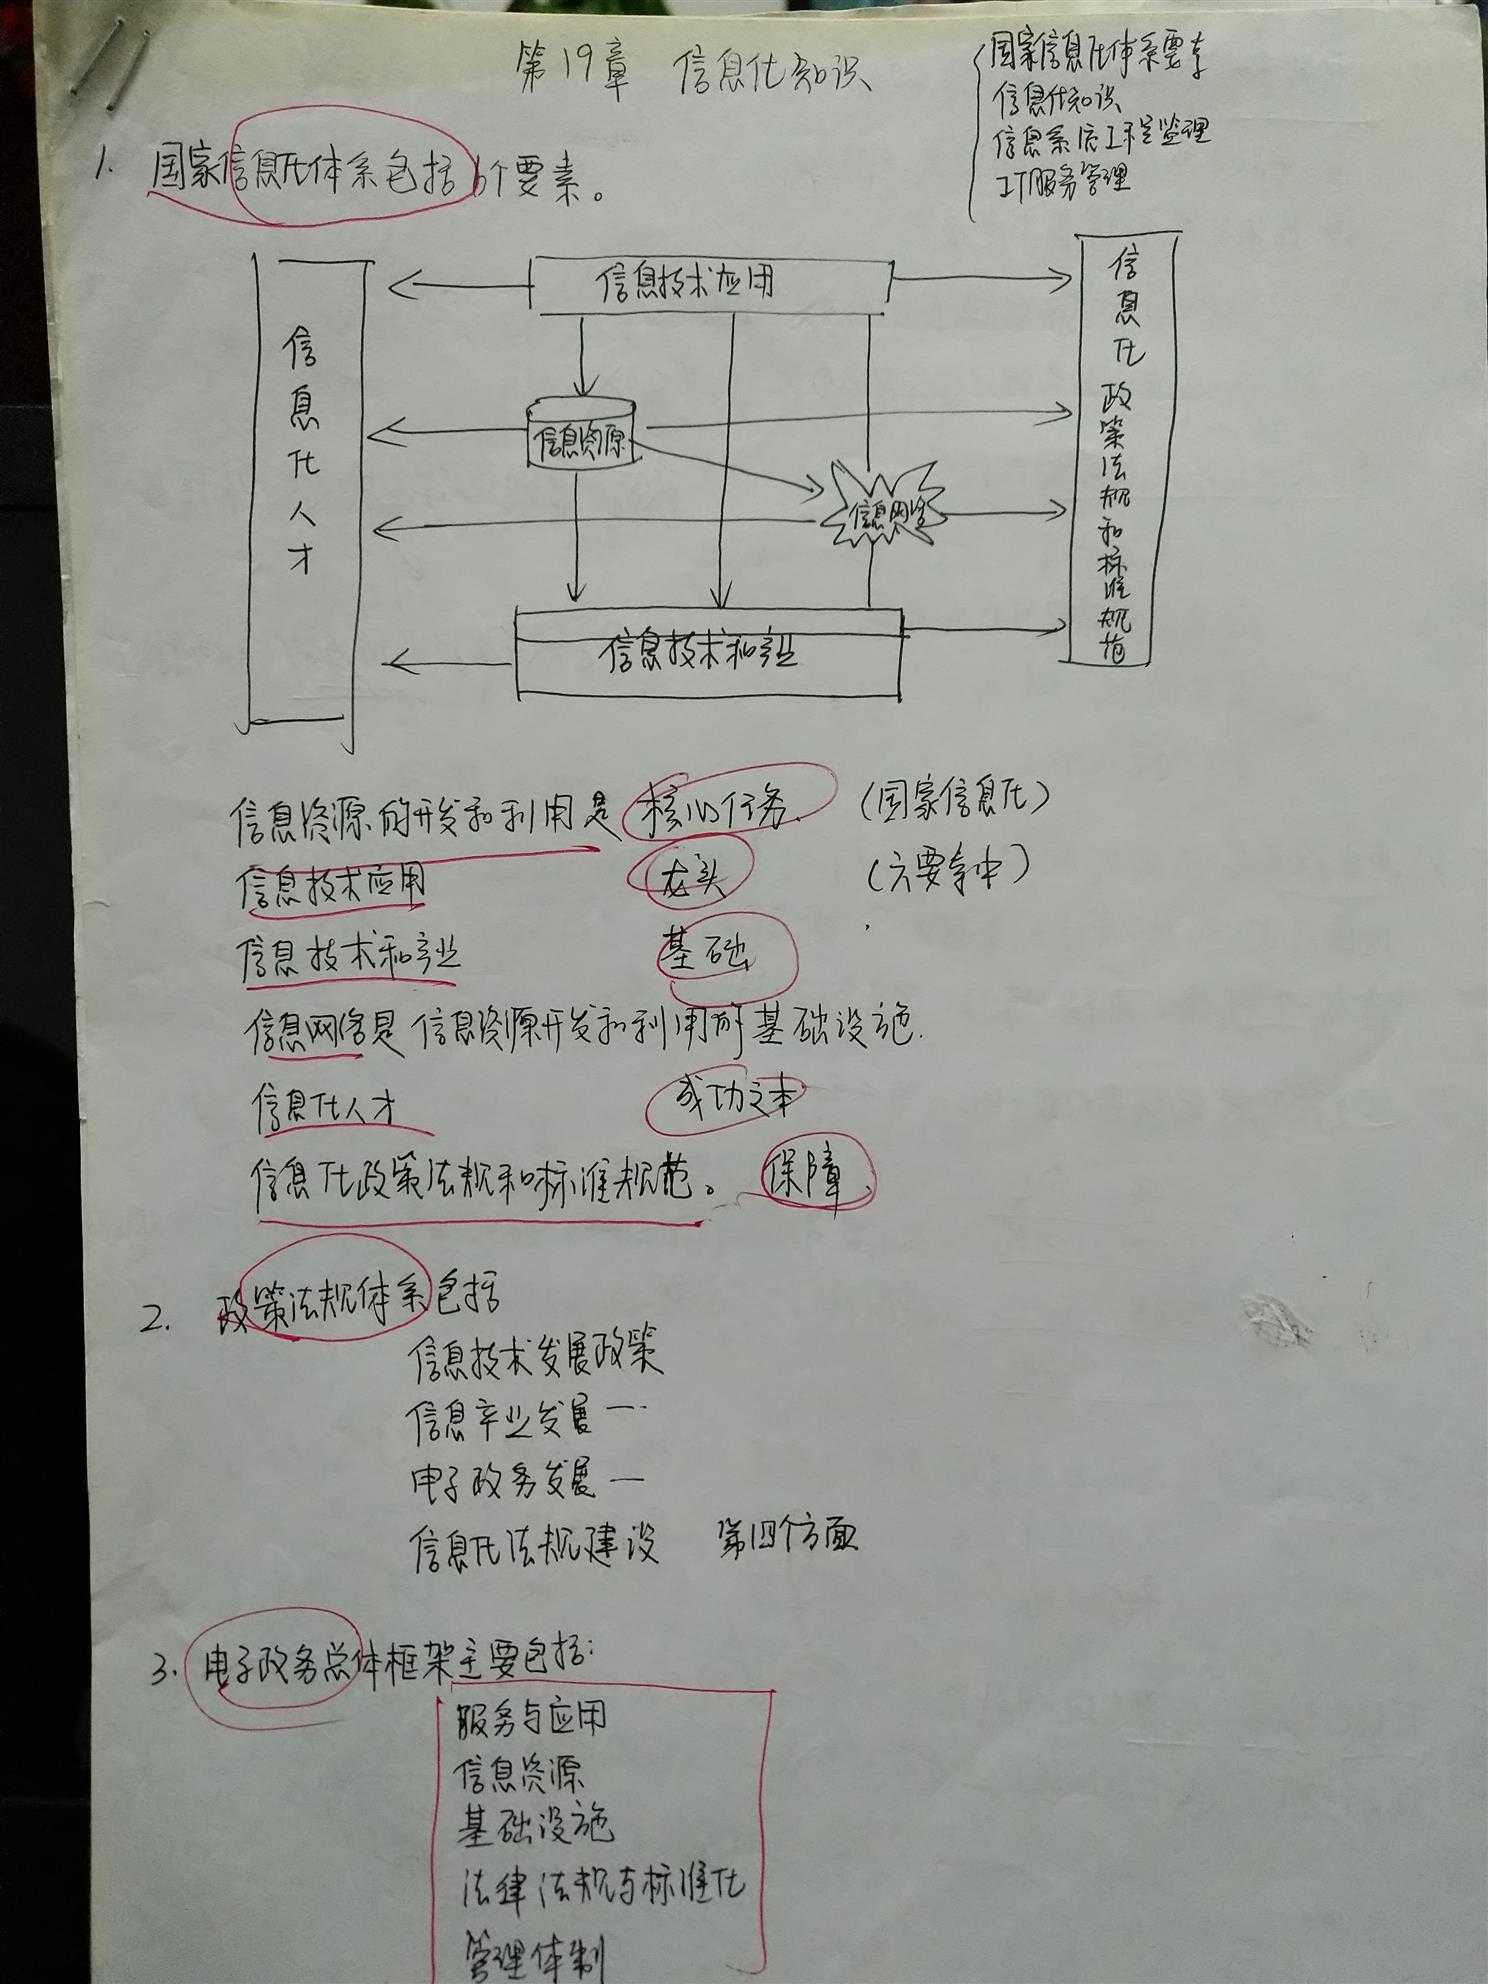 第19章 信息化知识
国家信息化体系要素
信息化知识
信息系统工程监理
IT服务管理
1. 国家信息化体系包括6个要素。
信息技术应用
信息化人才
信息资源
信息网络
信息技术和产业
信息化政策法规和标准规范
信息资源的开发和利用是 核心任务. (国家信息化)
信息技术应用 龙头 (六要素中)
信息技术和产业 基础
信息网络是信息资源开发和利用的基础设施.
信息化人才 成功之本
信息化政策法规和标准规范。 保障.
2. 政策法规体系包括
信息技术发展政策
信息产业发展—
电子政务发展—
信息化法规建设 第四个方面
3. 电子政务总体框架主要包括:
服务与应用
信息资源
基础设施
法律法规与标准化
管理体制